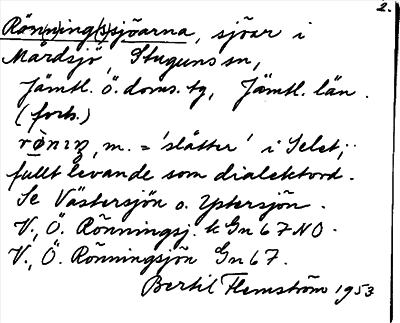 2.
Rön(n)ing(s)sjöarna, sjöar i
Mårdsjö, Stuguns sn,
Jämtl. ö. doms. tg, Jämtl. län.
(forts.)
, m. = 'slåtter' i Selet;
fullt levande som dialektord.
Se Västersjön o. Ystersjön.
V., Ö. Rönningsj. k Gn 67 NO.
V., Ö. Rönningsjön Gn 67.
Bertil Flemström 1953